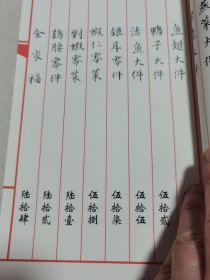 魚翅大件 伍拾貳
鴨子大件 伍拾伍
活魚大件 伍拾柒
銀耳零件 伍拾捌
蝦仁零菜 陸拾壹
對蝦零菜 陸拾貳
鷄腰零件 陸拾肆
全家福